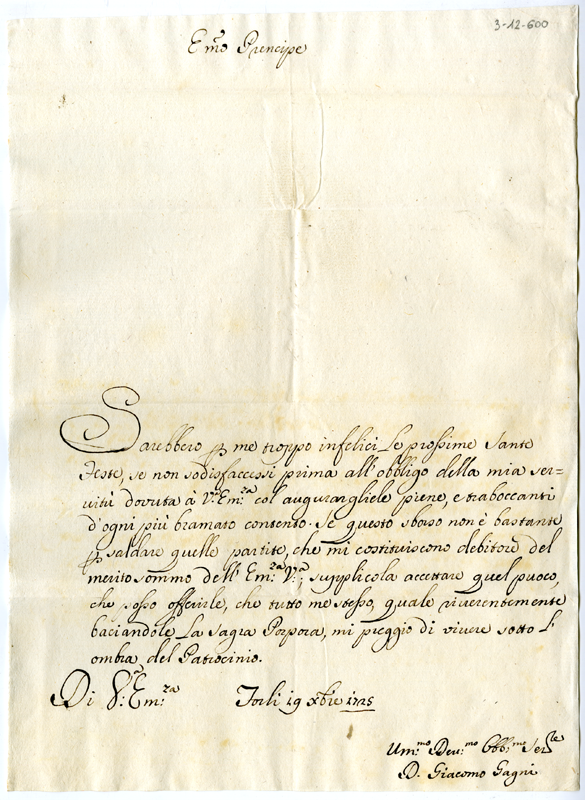 3-12-600
Em.o Prencipe
Sarebbero p me troppo infelici Le prossime Sante
Feste, se non sodisfacessi prima all'obbligo della mia ser=
vitù dovuta à V.a Em.za col augurargliele piene, e traboccanti
d'ogni più bramato contento. Se questo sborso non è bastante
p saldare quelle partite, che mi costituiscono debitore del
merito sommo dell'Em.za V.a; supplicola accettare quel puoco,
che posso offerirle, che tutto me stesso, quale riverentemente
baciandole La Sagra Porpora, mi preggio di vivere sotto L'
ombra del Patrocinio.
Di V.a Em.za Forlì 19 Xbre 1725
Um.mo Dev.mo Obb.mo Ser.le
D. Giacomo Gagni